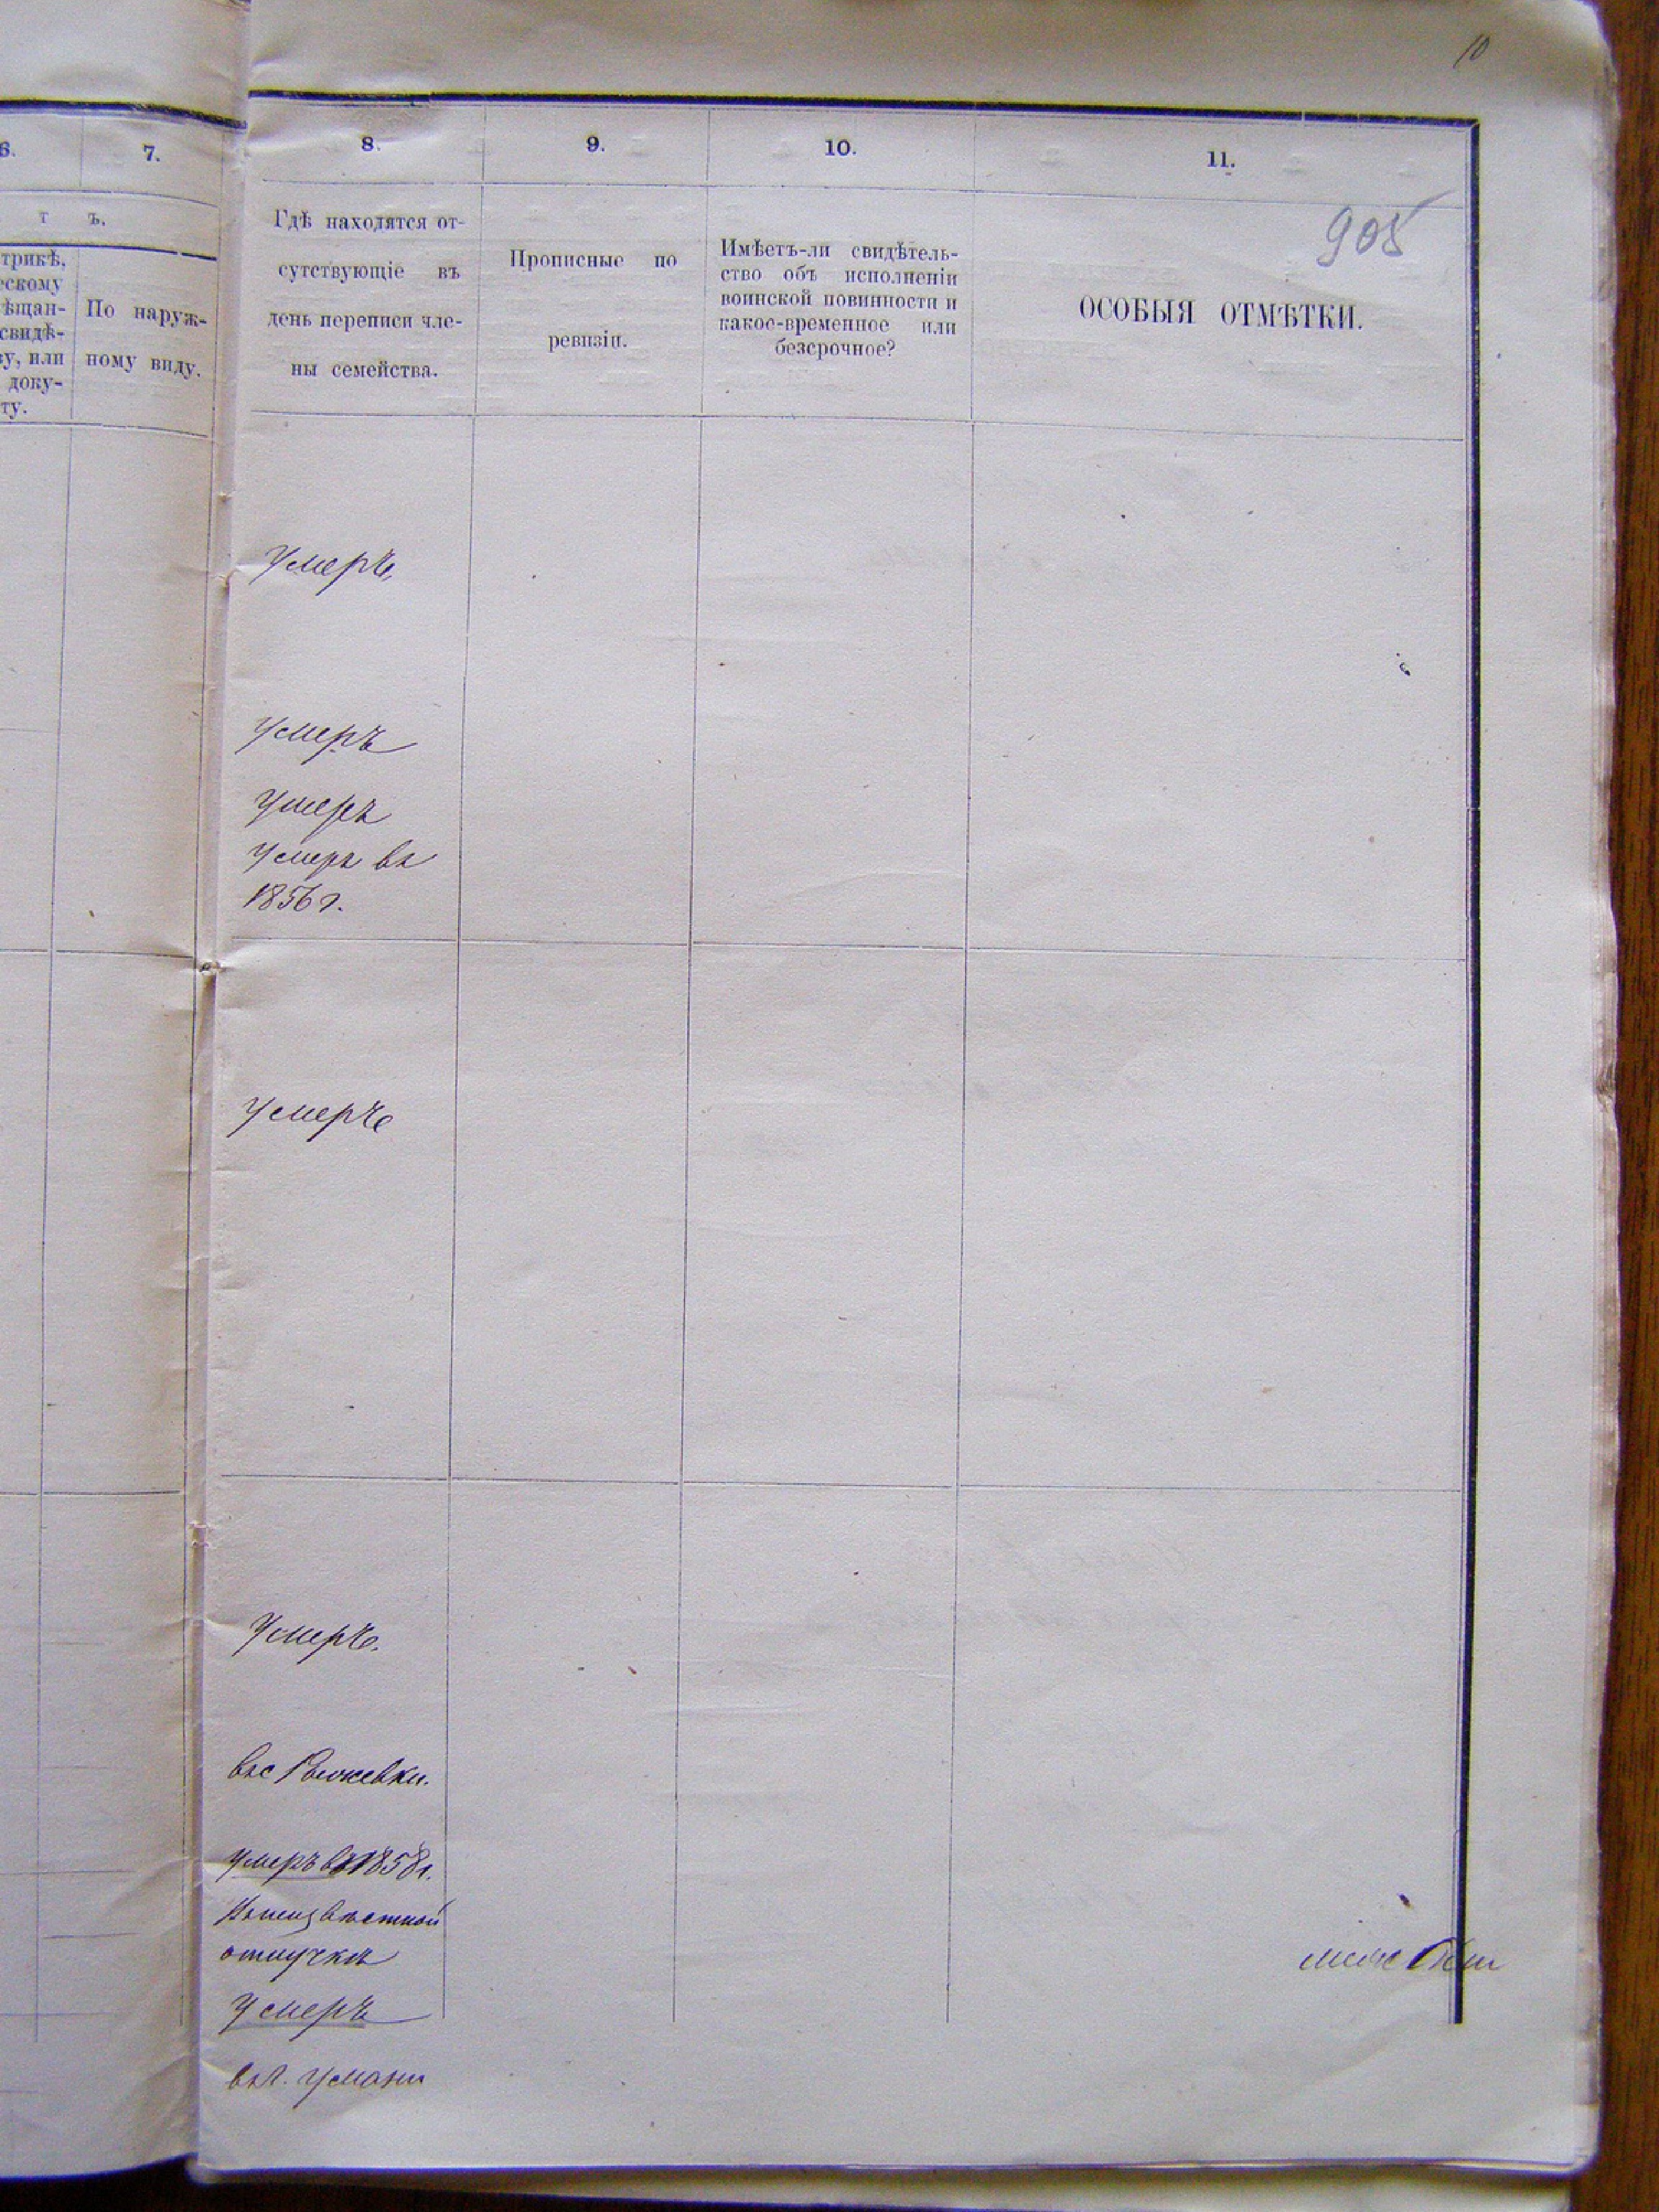 10
6.
7.
8.
9.
10.
11.
т ъ.
трикѣ,
ескому
ѣщан-
свидѣ-
ву, или
доку-
ту.
По наруж-
ному виду.
Гдѣ находятся от-
сутствующіе въ
день переписи чле-
ны семейства.
Прописные по
ревизіи.
Имѣетъ-ли свидѣтель-
ство объ исполненіи
воинской повинности и
какое-временное или
безсрочное?
905
ОСОБЫЯ ОТМѢТКИ.
Умеръ,
Умеръ
Умеръ
Умеръ въ
1856 г.
Умеръ
Умеръ.
въ с
Умеръ въ 1858 г.
Въ неизвѣстной
отлучкѣ
Умеръ
въ г. Умани